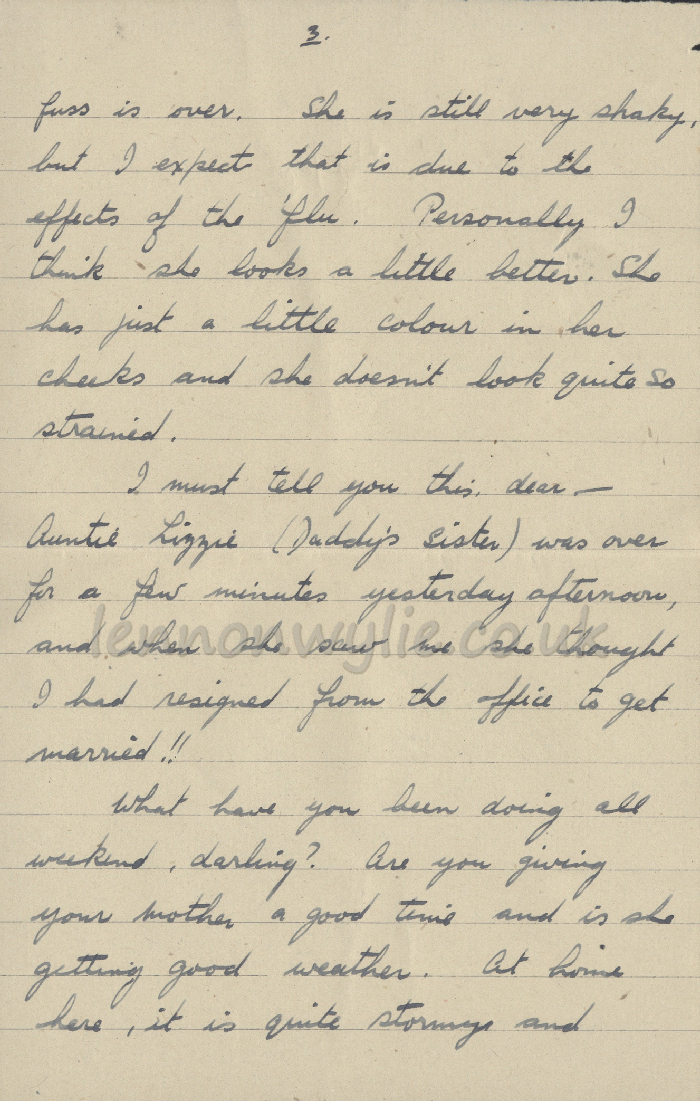 3.
fuss is over. She is still very shaky,
but I expect that is due to the
effects of the 'flu. Personally I
think she looks a little better. She
has just a little colour in her
cheeks and she doesn't look quite so
strained.
I must tell you this, dear —
Auntie Lizzie (Daddy's sister) was over
for a few minutes yesterday afternoon,
and when she saw me she thought
I had resigned from the office to get
married!!
What have you been doing all
weekend, darling? Are you giving
your mother a good time and is she
getting good weather. At home
here, it is quite stormy and
lennonwylie.co.uk